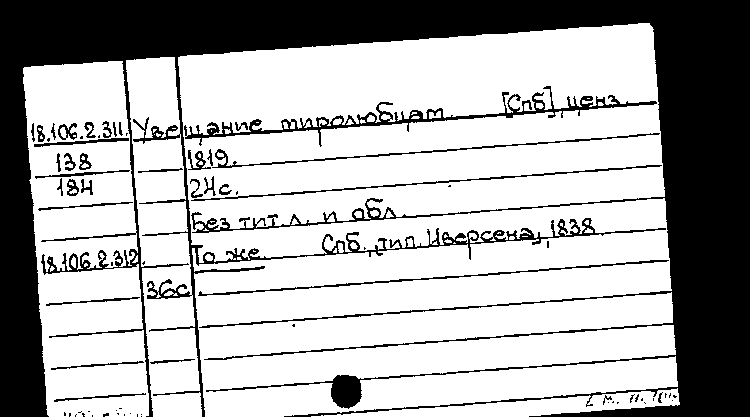 18.106.2.311. Увещание миролюбцам. [Спб], ценз.
138 1819.
184 24с.
Без тит. л. и обл.
18.106.2.312. То же. Спб., тип. Иверсена, 1838.
36с.